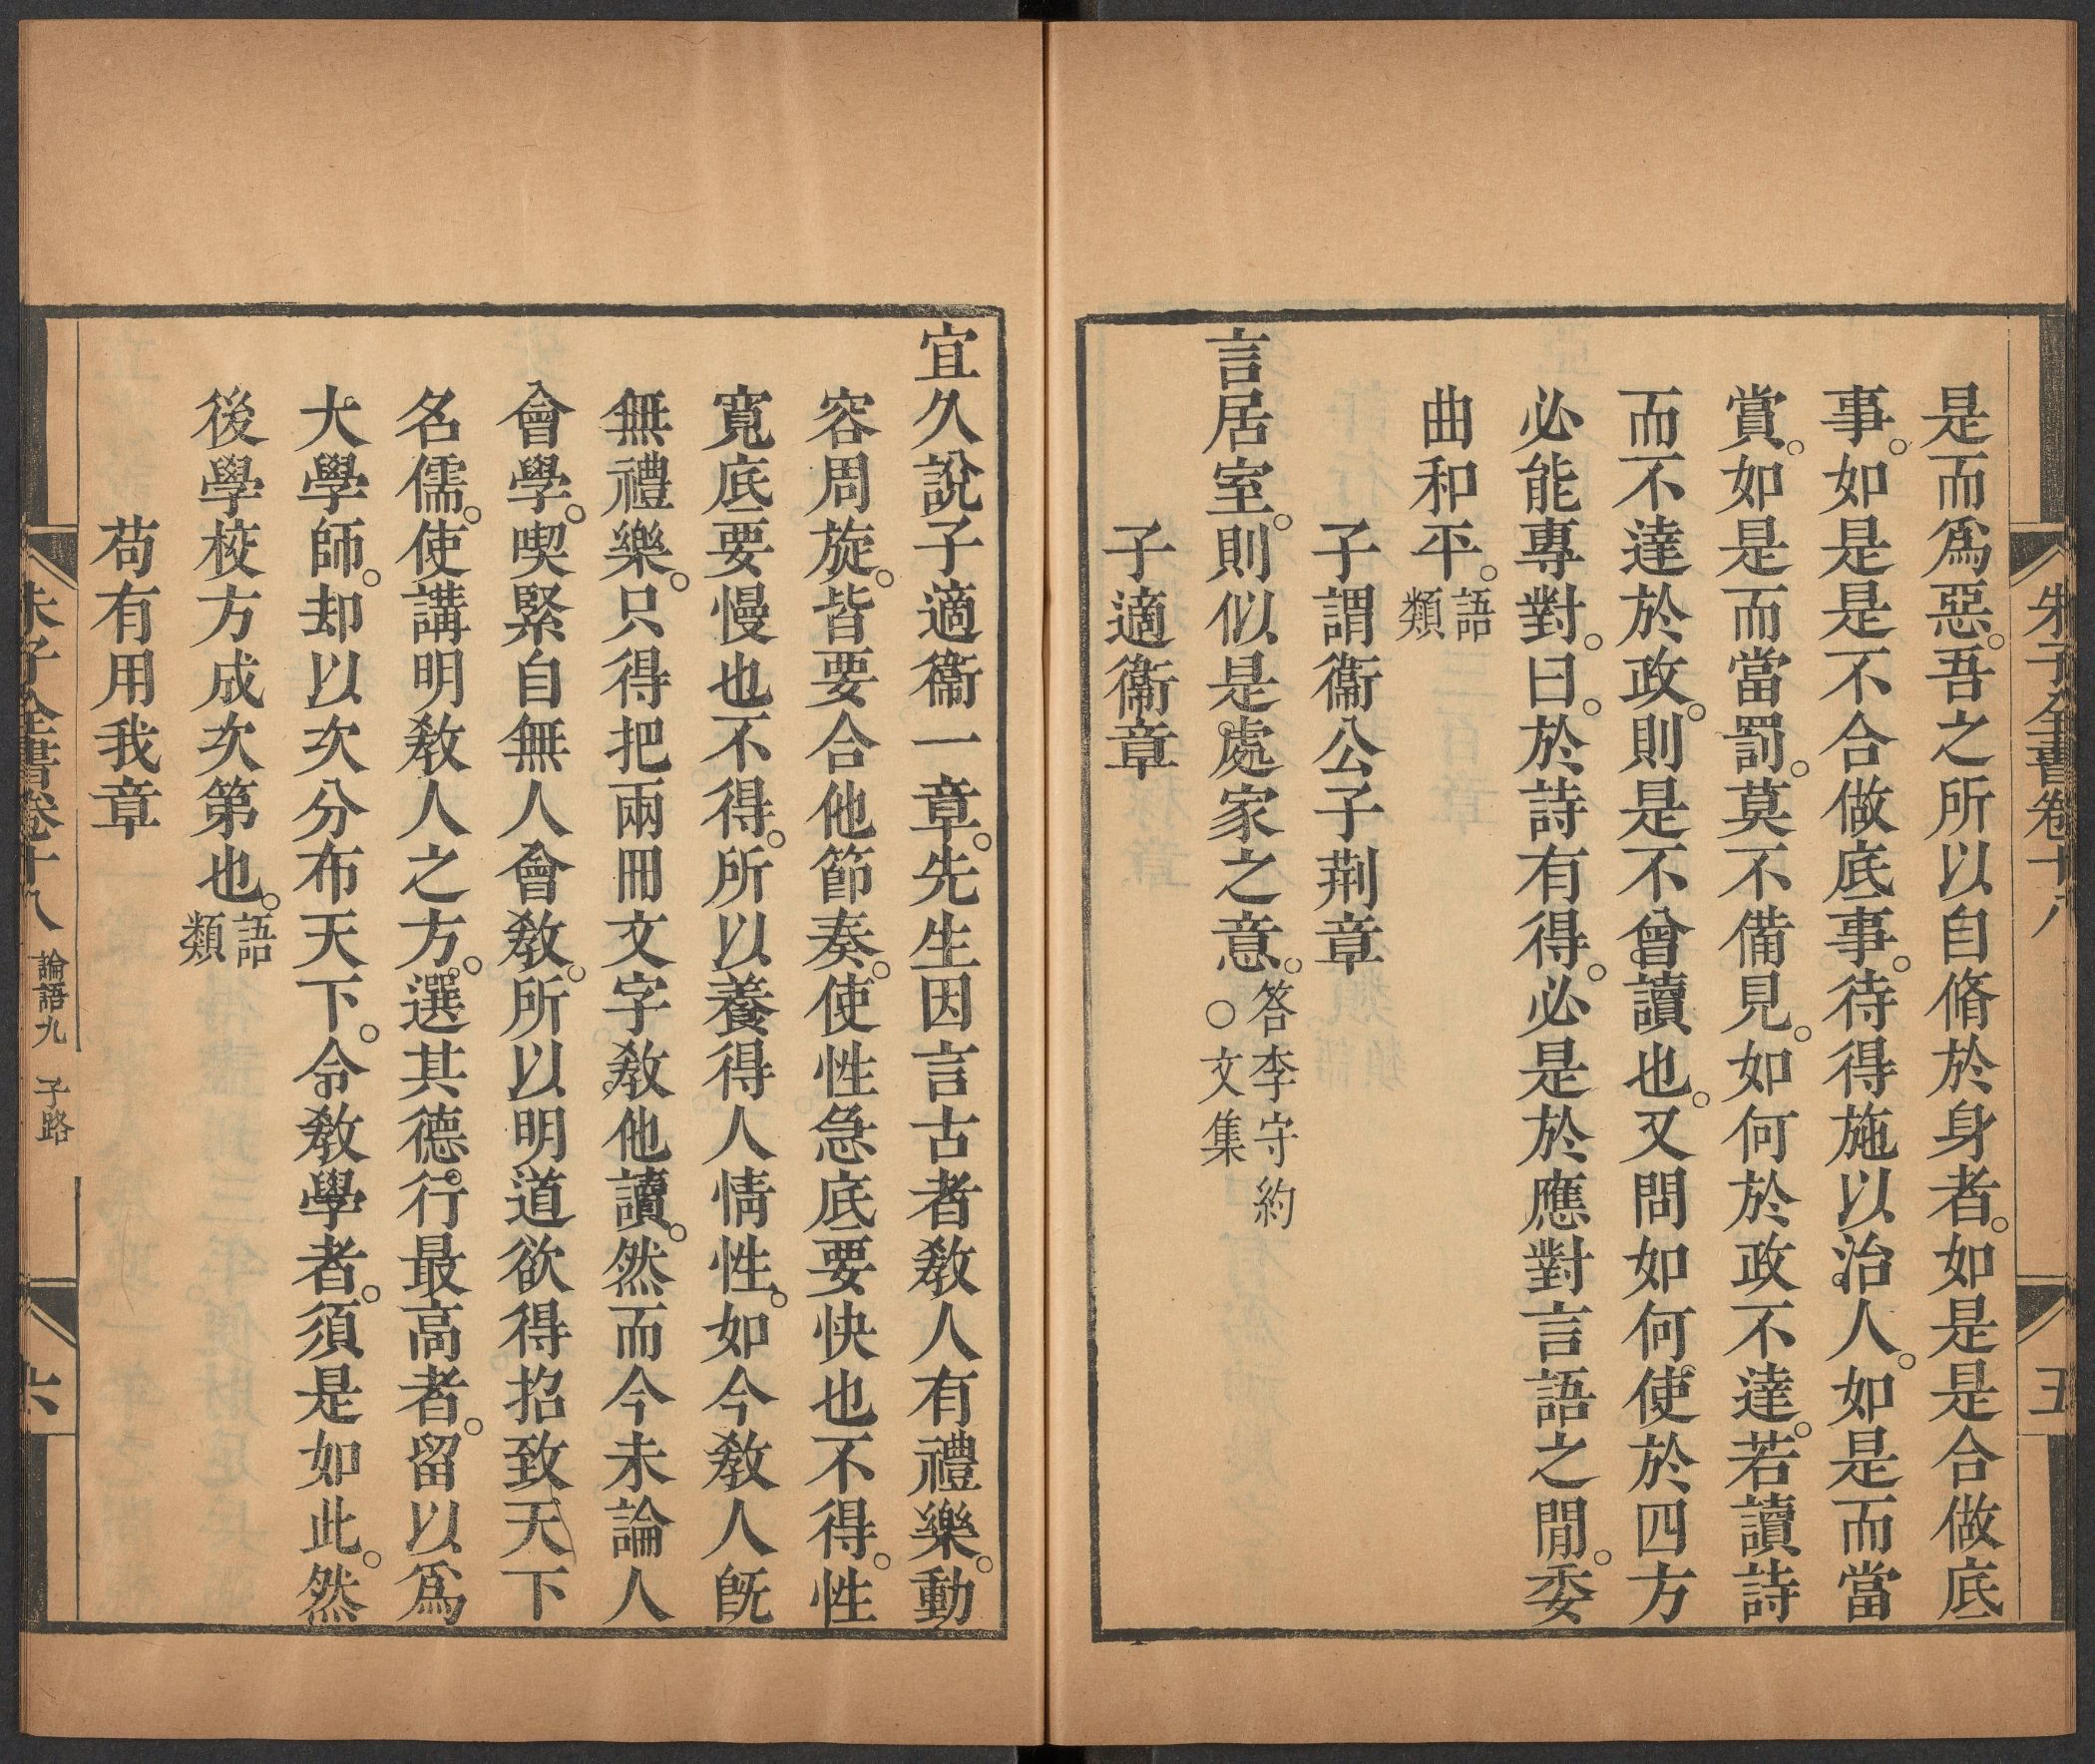 朱子全書卷十八
五
是而爲惡。吾之所以自脩於身者。如是是合做底
事。如是是不合做底事。待得施以治人。如是而當
賞。如是而當罰。莫不備見。如何於政不達。若讀詩
而不達於政。則是不曾讀也。又問如何使於四方
必能專對。曰。於詩有得。必是於應對言語之閒。委
曲和平。語類
子謂衞公子荆章
言居室。則似是處家之意。答李守約○文集
子適衞章
宜久說子適衞一章。先生因言古者敎人有禮樂。動
容周旋。皆要合他節奏。使性急底要快也不得。性
寬底要慢也不得。所以養得人情性。如今敎人旣
無禮樂。只得把兩冊文字敎他讀。然而今未論人
會學。喫緊自無人會敎。所以明道欲得招致天下
名儒。使講明敎人之方。選其德行最高者。留以爲
大學師。却以次分布天下。令敎學者。須是如此。然
後學校方成次第也。語類
苟有用我章
朱子全書卷十八 論語九 子路
六